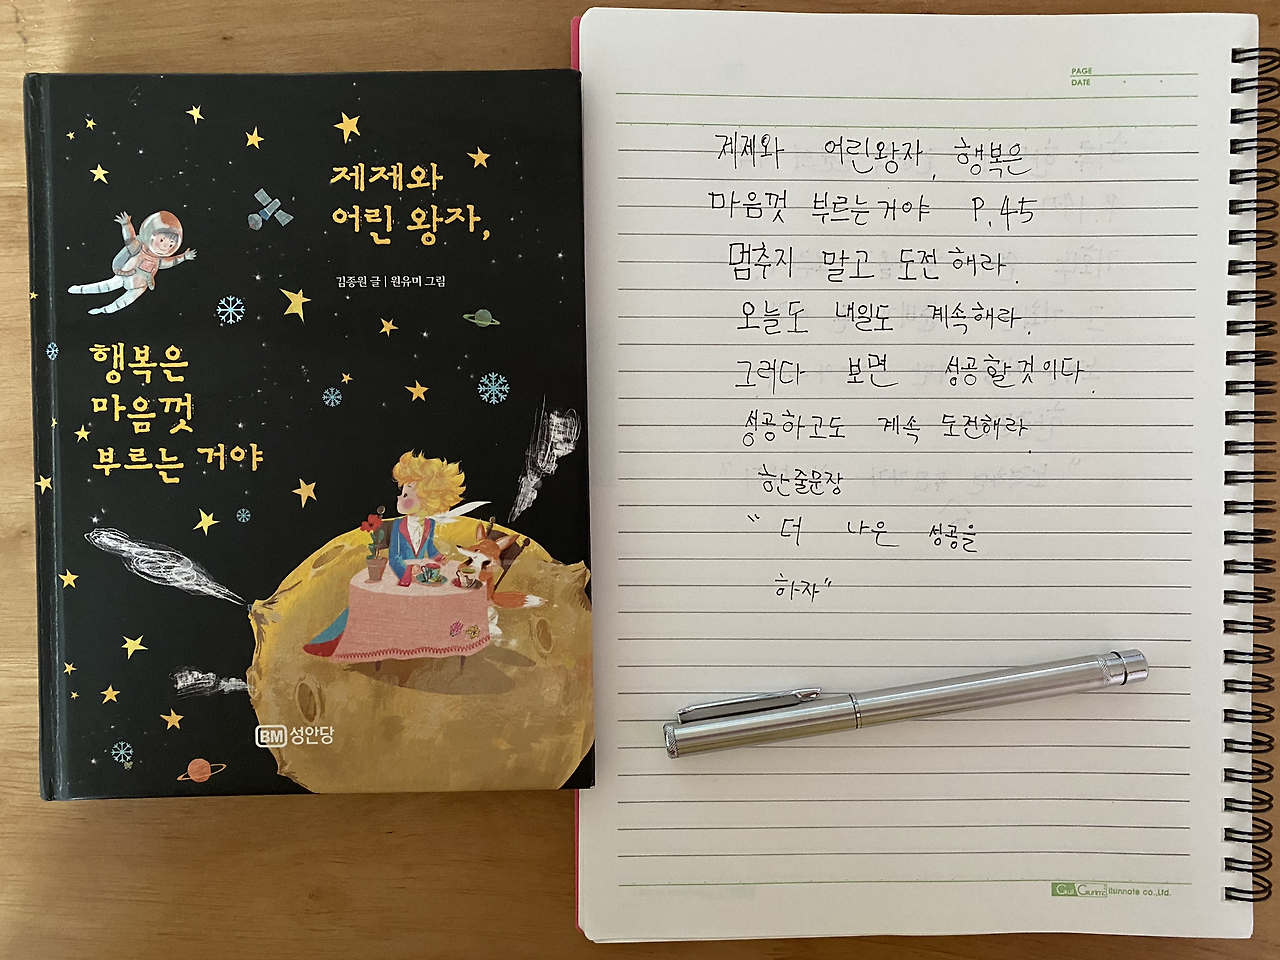 제제와
어린 왕자,
김종원 글 | 원유미 그림
행복은
마음껏
부르는 거야
BM 성안당
PAGE
DATE
제제와 어린왕자, 행복은
마음껏 부르는거야 P.45
멈추지 말고 도전해라.
오늘도 내일도 계속해라.
그러다 보면 성공할것이다.
성공하고도 계속 도전해라.
한줄문장
" 더 나은 성공을
하자"
ilsinnate co.,Ltd.